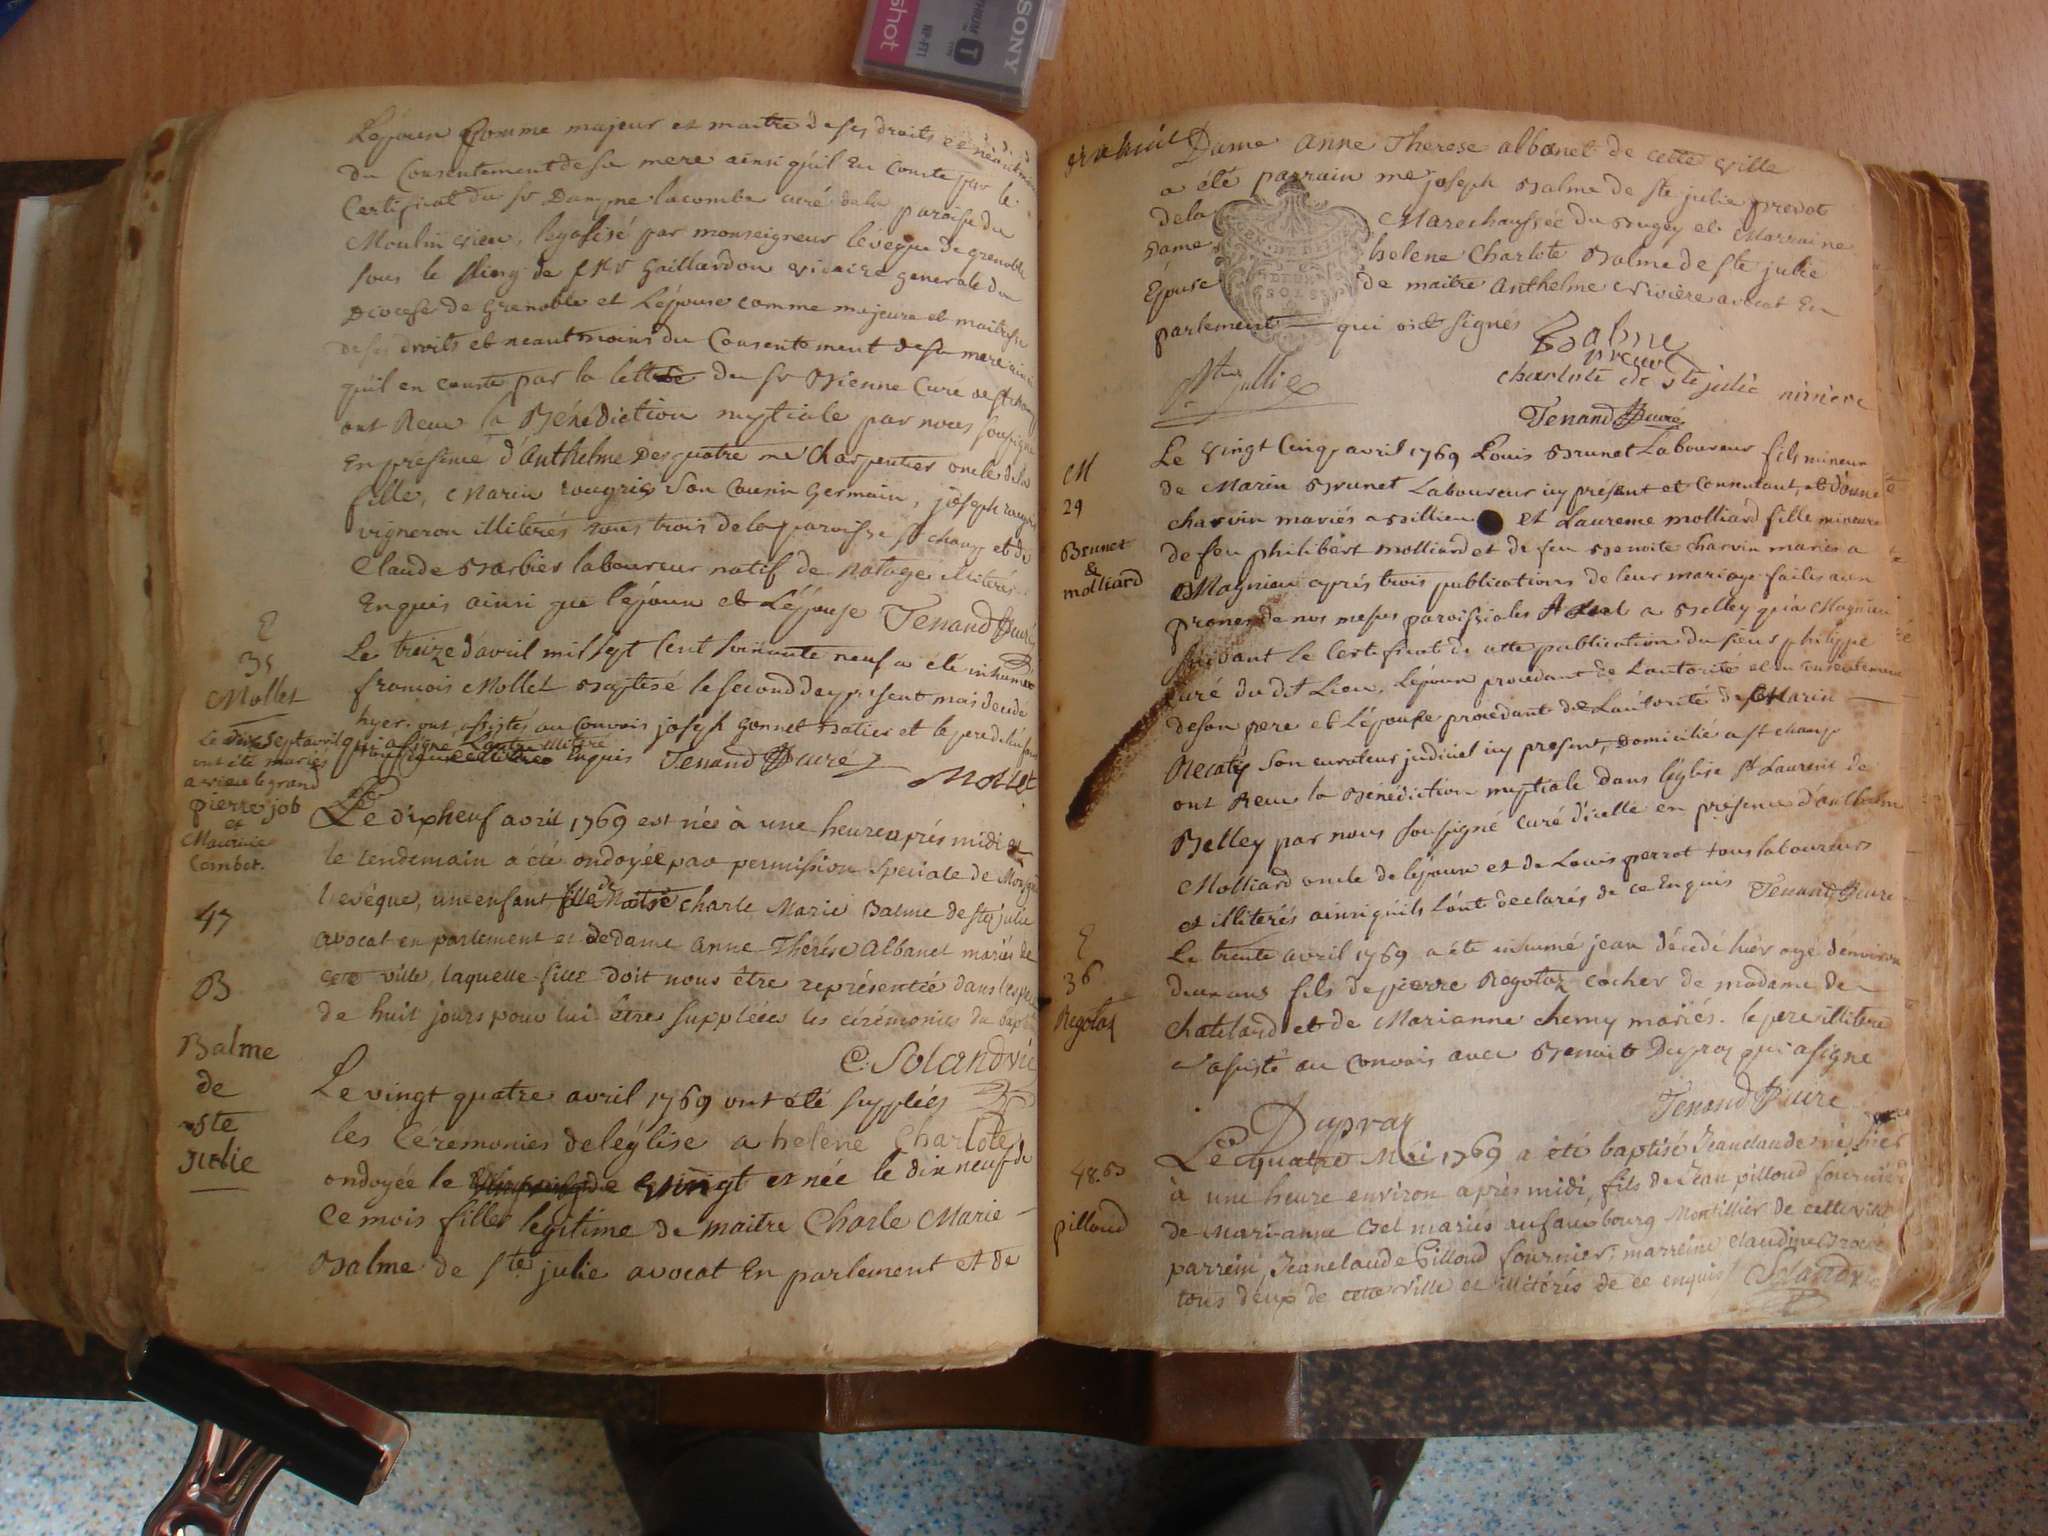 SONY
shot
NP-FT1
T
L'epoux Comme majeur et maitre de ses droits et neantmoins
du Consentement de sa mere ainsi qu'il En Conste par le
Certificat du Sr Dampne lacombe curé de la paroisse du
Moulin vieu, legalisé par monseigneur levêque de grenoble
sous le de Gaillardon vicaire generale du
Diocese de Grenoble et L'épouse comme majeure et maitresse
de ses droits et neantmoins du Consentement de sa mere ainsi
qu'il en conste par la lettre du Sr Bienne Curé de St champ
ont Reçu la Bénédiction nuptiale par nous soussigné
En presence d'Anthelme Desquatre me Charpentier oncle de la
fille, Marin rougris Son Cousin Germain, joseph
vigneron illiterés tous trois de la paroisse St champ et de
Claude Barbier laboureur natif de Nattages illiterés
Enquis ainsi que l'époux et L'épouse Tenand Curé
E
35
Mollet
Le treize d'avril mil sept Cent soixante neuf a été inhumé
francois Mollet Baptisé le second du present mois decedé
hyer. ont assisté au Convois joseph gonnet Batier et le pere
qui a signé Enquis Tenand Curé
Mollet
Le dix sept avril
ont été mariés
a vieu le grand
pierre job
et
Maurice
Combet.
47
B
Balme
de
ste
Julie
Le dixneuf avril 1769 est née à une heure après midi et
le lendemain a été ondoyée par permission speciale de Monsgr
l'evêque, une enfant fille de Maitre Charle Marie Balme de ste julie
avocat en parlement et de dame Anne Therèse Albanet mariés de
cette ville, laquelle fille doit nous être représentée dans l'espace
de huit jours pour lui êtres suppléées les cérémonies du baptême
C. Soland vic
Le vingt quatre avril 1769 ont été suppléés
les Cérémonies de l'église a helene Charlote
ondoyée le vingt et née le dix neuf de
ce mois fille legitime de maitre Charle Marie
Balme de ste julie avocat En parlement et de
Dame Anne Therese albanet de cette ville
a été parrain me joseph Balme de ste julie prevot
de la Marechaussée du Bugey et Marraine
Dame helene Charlote Balme de ste julie
Epouse de maitre Anthelme Rivière avocat En
parlement qui ont signés Balme
Ste Julie
charlote de Ste julie riviere
Tenand Curé
M
29
Brunet
&
molliard
Le vingt Cinq avril 1769 Louis Brunet Laboureur fils mineur
de Marin Brunet Laboureur icy présent et Consentant, et d'
charvin mariés a Billieu et Laurence molliard fille mineure
de feu philibert molliard et de feu Benoite Charvin mariés a
Magnieu après trois publications de leur mariage faites aux
prones de nos messes paroissiales tant a Belley qu'a Magnieu
suivant le Certificat de cette publication du sieur philippe
curé du dit Lieu, L'époux procedant de L'autorité et du consentement
de son pere et L'épouse procedant de L'autorité de Marin
Récatin son curateur judiciel icy present, Domicilié a St champ
ont Reçu la Bénédiction nuptiale dans l'église St Laurent de
Belley par nous soussigné curé d'icelle en présence d'anthelme
Molliard oncle de l'épouse et de Louis perrot tous laboureurs
et illiterés ainsi qu'ils l'ont declarés de ce Enquis Tenand Curé
E
36
Regotaz
Le trente avril 1769 a été inhumé jean décédé hier agé d'environ
deux ans fils de pierre Regotaz cocher de madame de
chateland et de Marianne chemy mariés. le pere illiteré
a assisté au Convois avec Benoit Dupraz qui a signé
Tenand Curé
Dupraz
48. B
pilloud
Le quatre Mai 1769 a été baptisé Jeanclaude né hier
à une heure environ après midi, fils de Jean pilloud fournier
de Marianne Bel mariés au fauxbourg Montillier de cette ville
parrein, Jeanclaude Pilloud fournier; marreine claudine
tous deux de cette ville et illitérés de ce enquis C. Soland vic